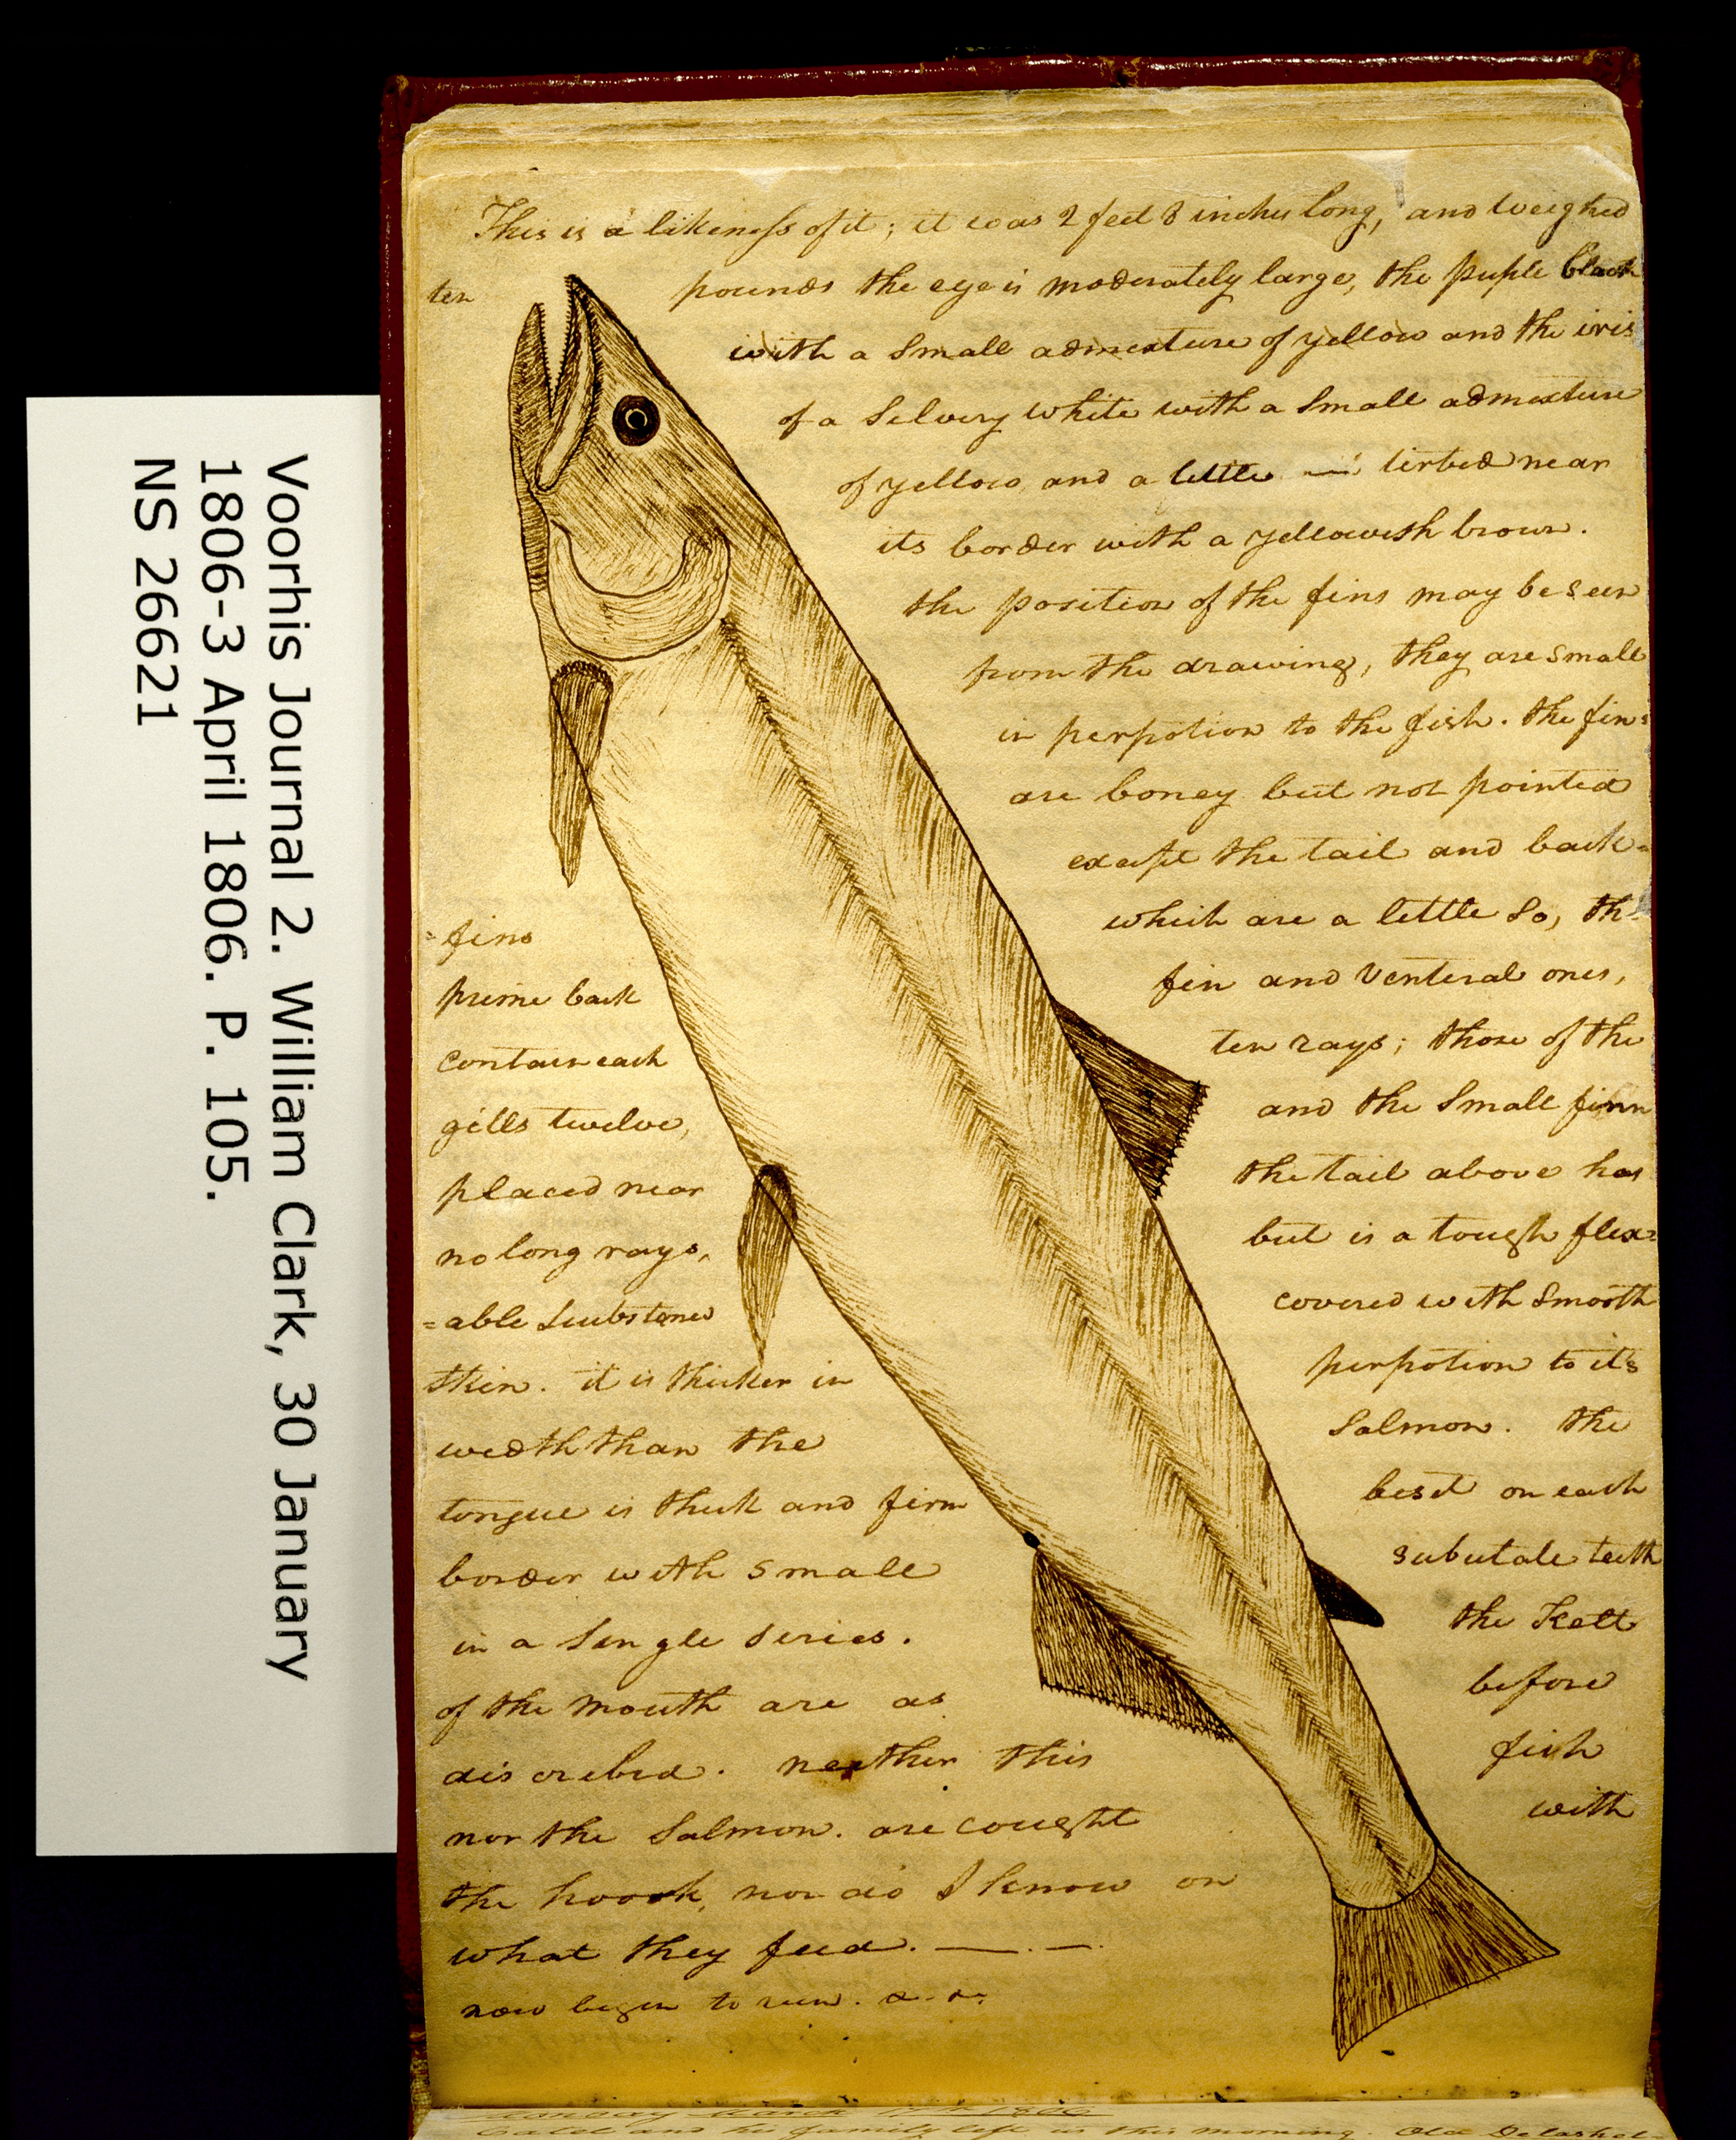 This is a likeness of it; it was 2 feet 8 inches long, and weighed
ten pounds the eye is moderately large, the puple black
with a Small admexture of yellow and the iris
of a Silvery white with a Small admexture
of yellow and a little — tirbed near
its border with a yellowish brown.
the position of the fins may be seen
from the drawing, they are small
in perpotion to the fish. the fins
are boney but not pointed
except the tail and back=
=fins which are a little So, the
prime back fin and Venteral ones,
contain each ten rays; those of the
gills twelve, and the Small finn
placed near the tail above has
no long rays, but is a tough flex=
=able Substance covered with Smooth
Skin. it is thicker in perpotion to it's
wedth than the Salmon. the
tongue is thick and firm beset on each
border with small subutale teeth
in a Single Series. the Teeth
of the mouth are as before
discribed. neather this fish
nor the Salmon. are cought with
the hook, nor do I know on
what they feed. — . —
now begin to run. &. &.
Monday March 17th 1806
Catel and his family left us this morning. Old Delashel-
Voorhis Journal 2. William Clark, 30 January
1806-3 April 1806. P. 105.
NS 26621